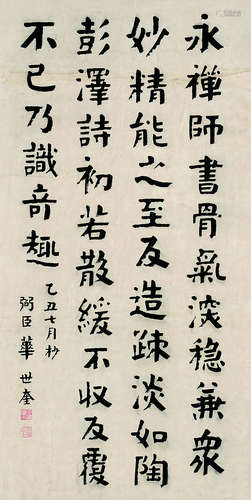 永禪師書骨氣深穩兼眾
妙精能之至反造疎淡如陶
彭澤詩初若散緩不收反覆
不已乃識奇趣
乙丑七月杪
弼臣華世奎